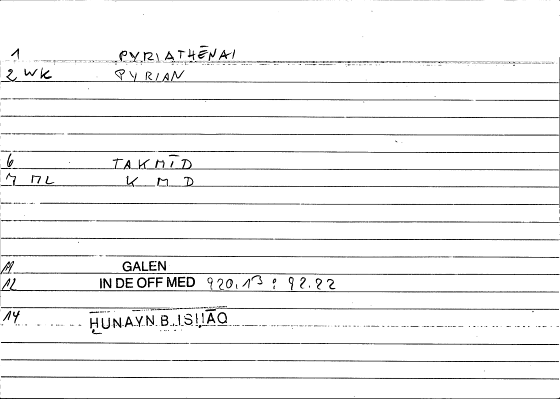 1 PYRIATHĒNAI
2 WK PYRIAN
6 TAKMĪD
7 ML K M D
11 GALEN
12 IN DE OFF MED 920.13 : 92.22
14 ḤUNAYN B. ISḤĀQ